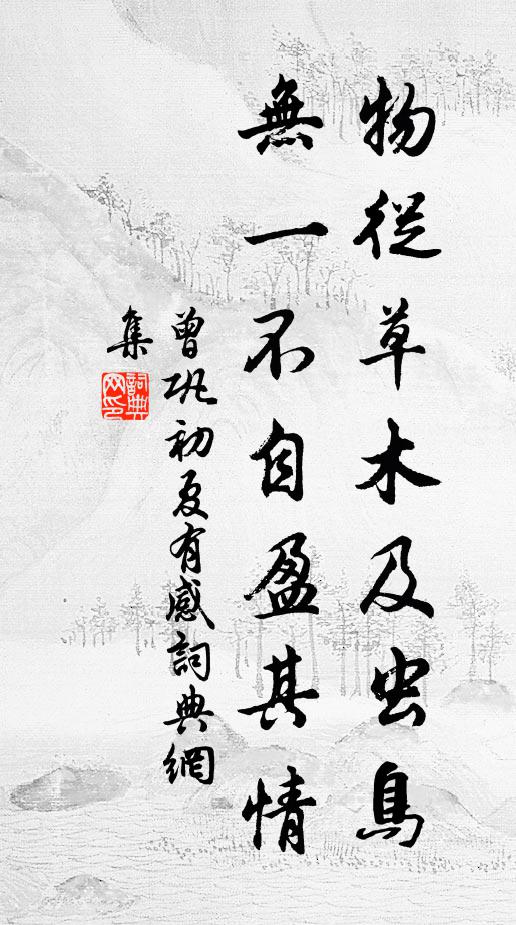 物從草木及虫鳥
無一不自盈其情
曾巩初夏有感詞典網
集
詞典
网印